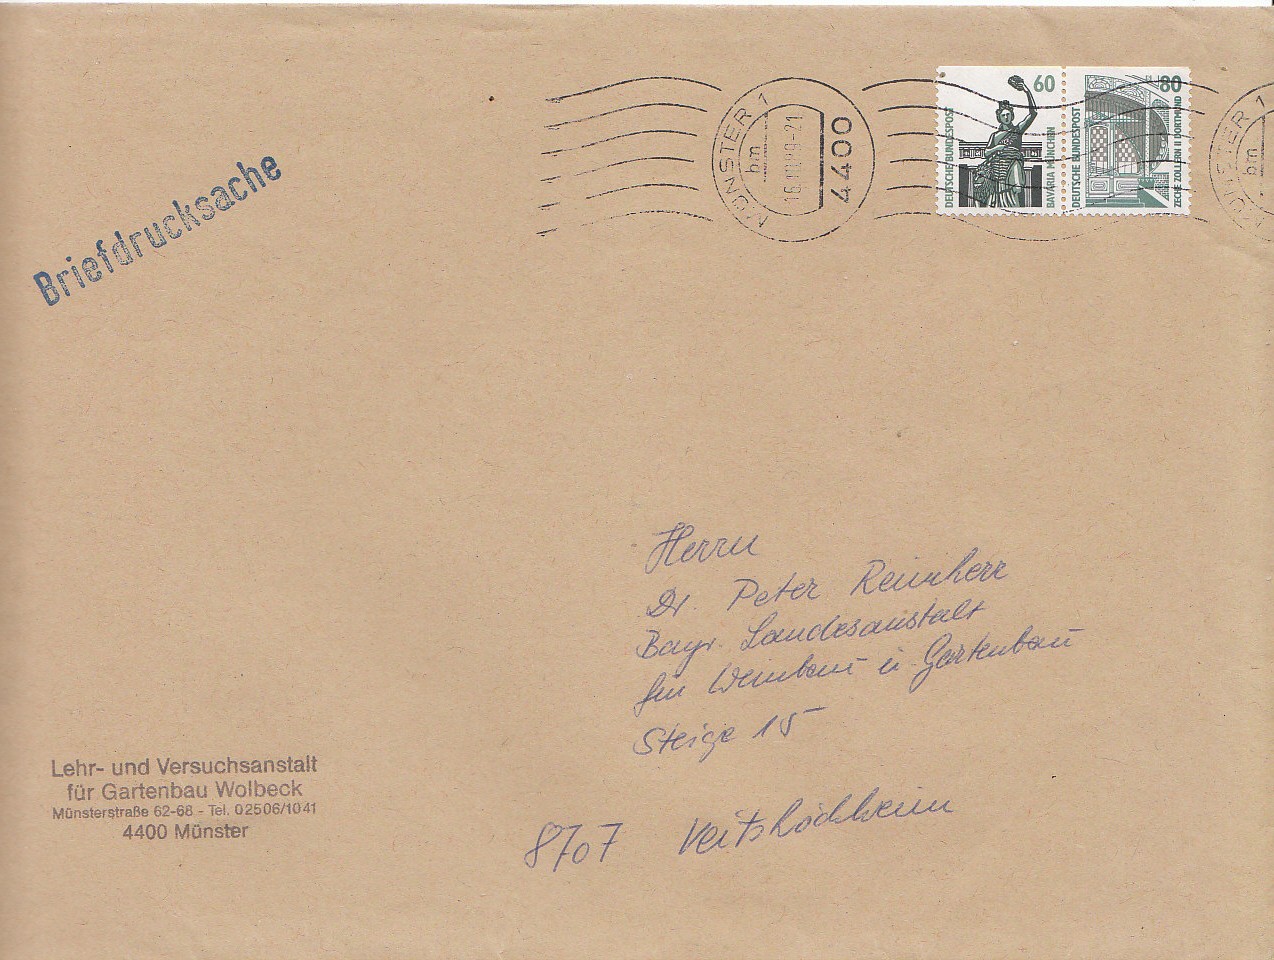 Briefdrucksache
MÜNSTER 1
bm
4400
60
DEUTSCHE BUNDESPOST
BAVARIA MÜNCHEN
80
DEUTSCHE BUNDESPOST
ZECHE ZOLLERN II DORTMUND
Herrn
Dr. Peter
Bayr. Landesanstalt
für Weinbau u. Gartenbau
Steige 15
8707 Veitshöchheim
Lehr- und Versuchsanstalt
für Gartenbau Wolbeck
Münsterstraße 62-68 - Tel. 02506/1041
4400 Münster